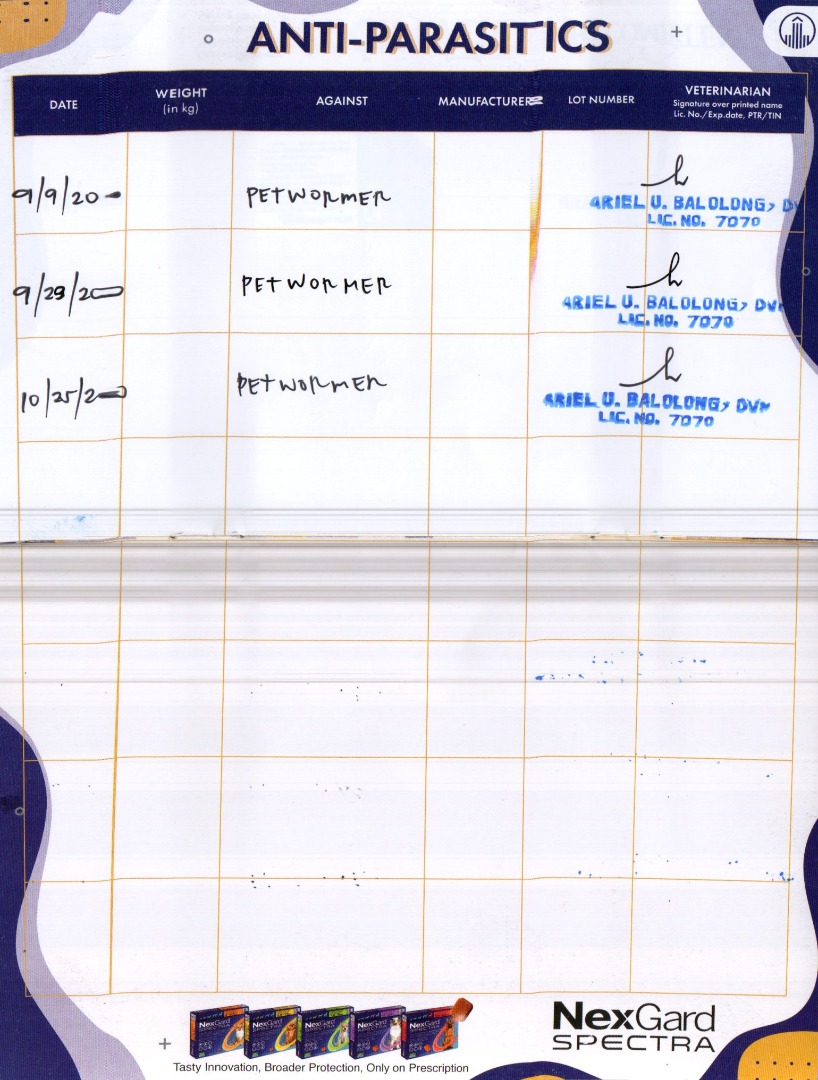 ANTI-PARASITICS
DATE
WEIGHT
(in kg)
AGAINST
MANUFACTURER
LOT NUMBER
VETERINARIAN
Signature over printed name
Lic. No./Exp.date, PTR/TIN
9/9/20
PETWORMER
ARIEL U. BALOLONG, D
LIC. NO. 7070
9/29/20
PETWORMER
ARIEL U. BALOLONG, DV
LIC. NO. 7070
10/25/2
PETWORMER
ARIEL U. BALOLONG, DVM
LIC. NO. 7070
NexGard NexGard NexGard NexGard NexGard
NexGard
SPECTRA
Tasty Innovation, Broader Protection, Only on Prescription